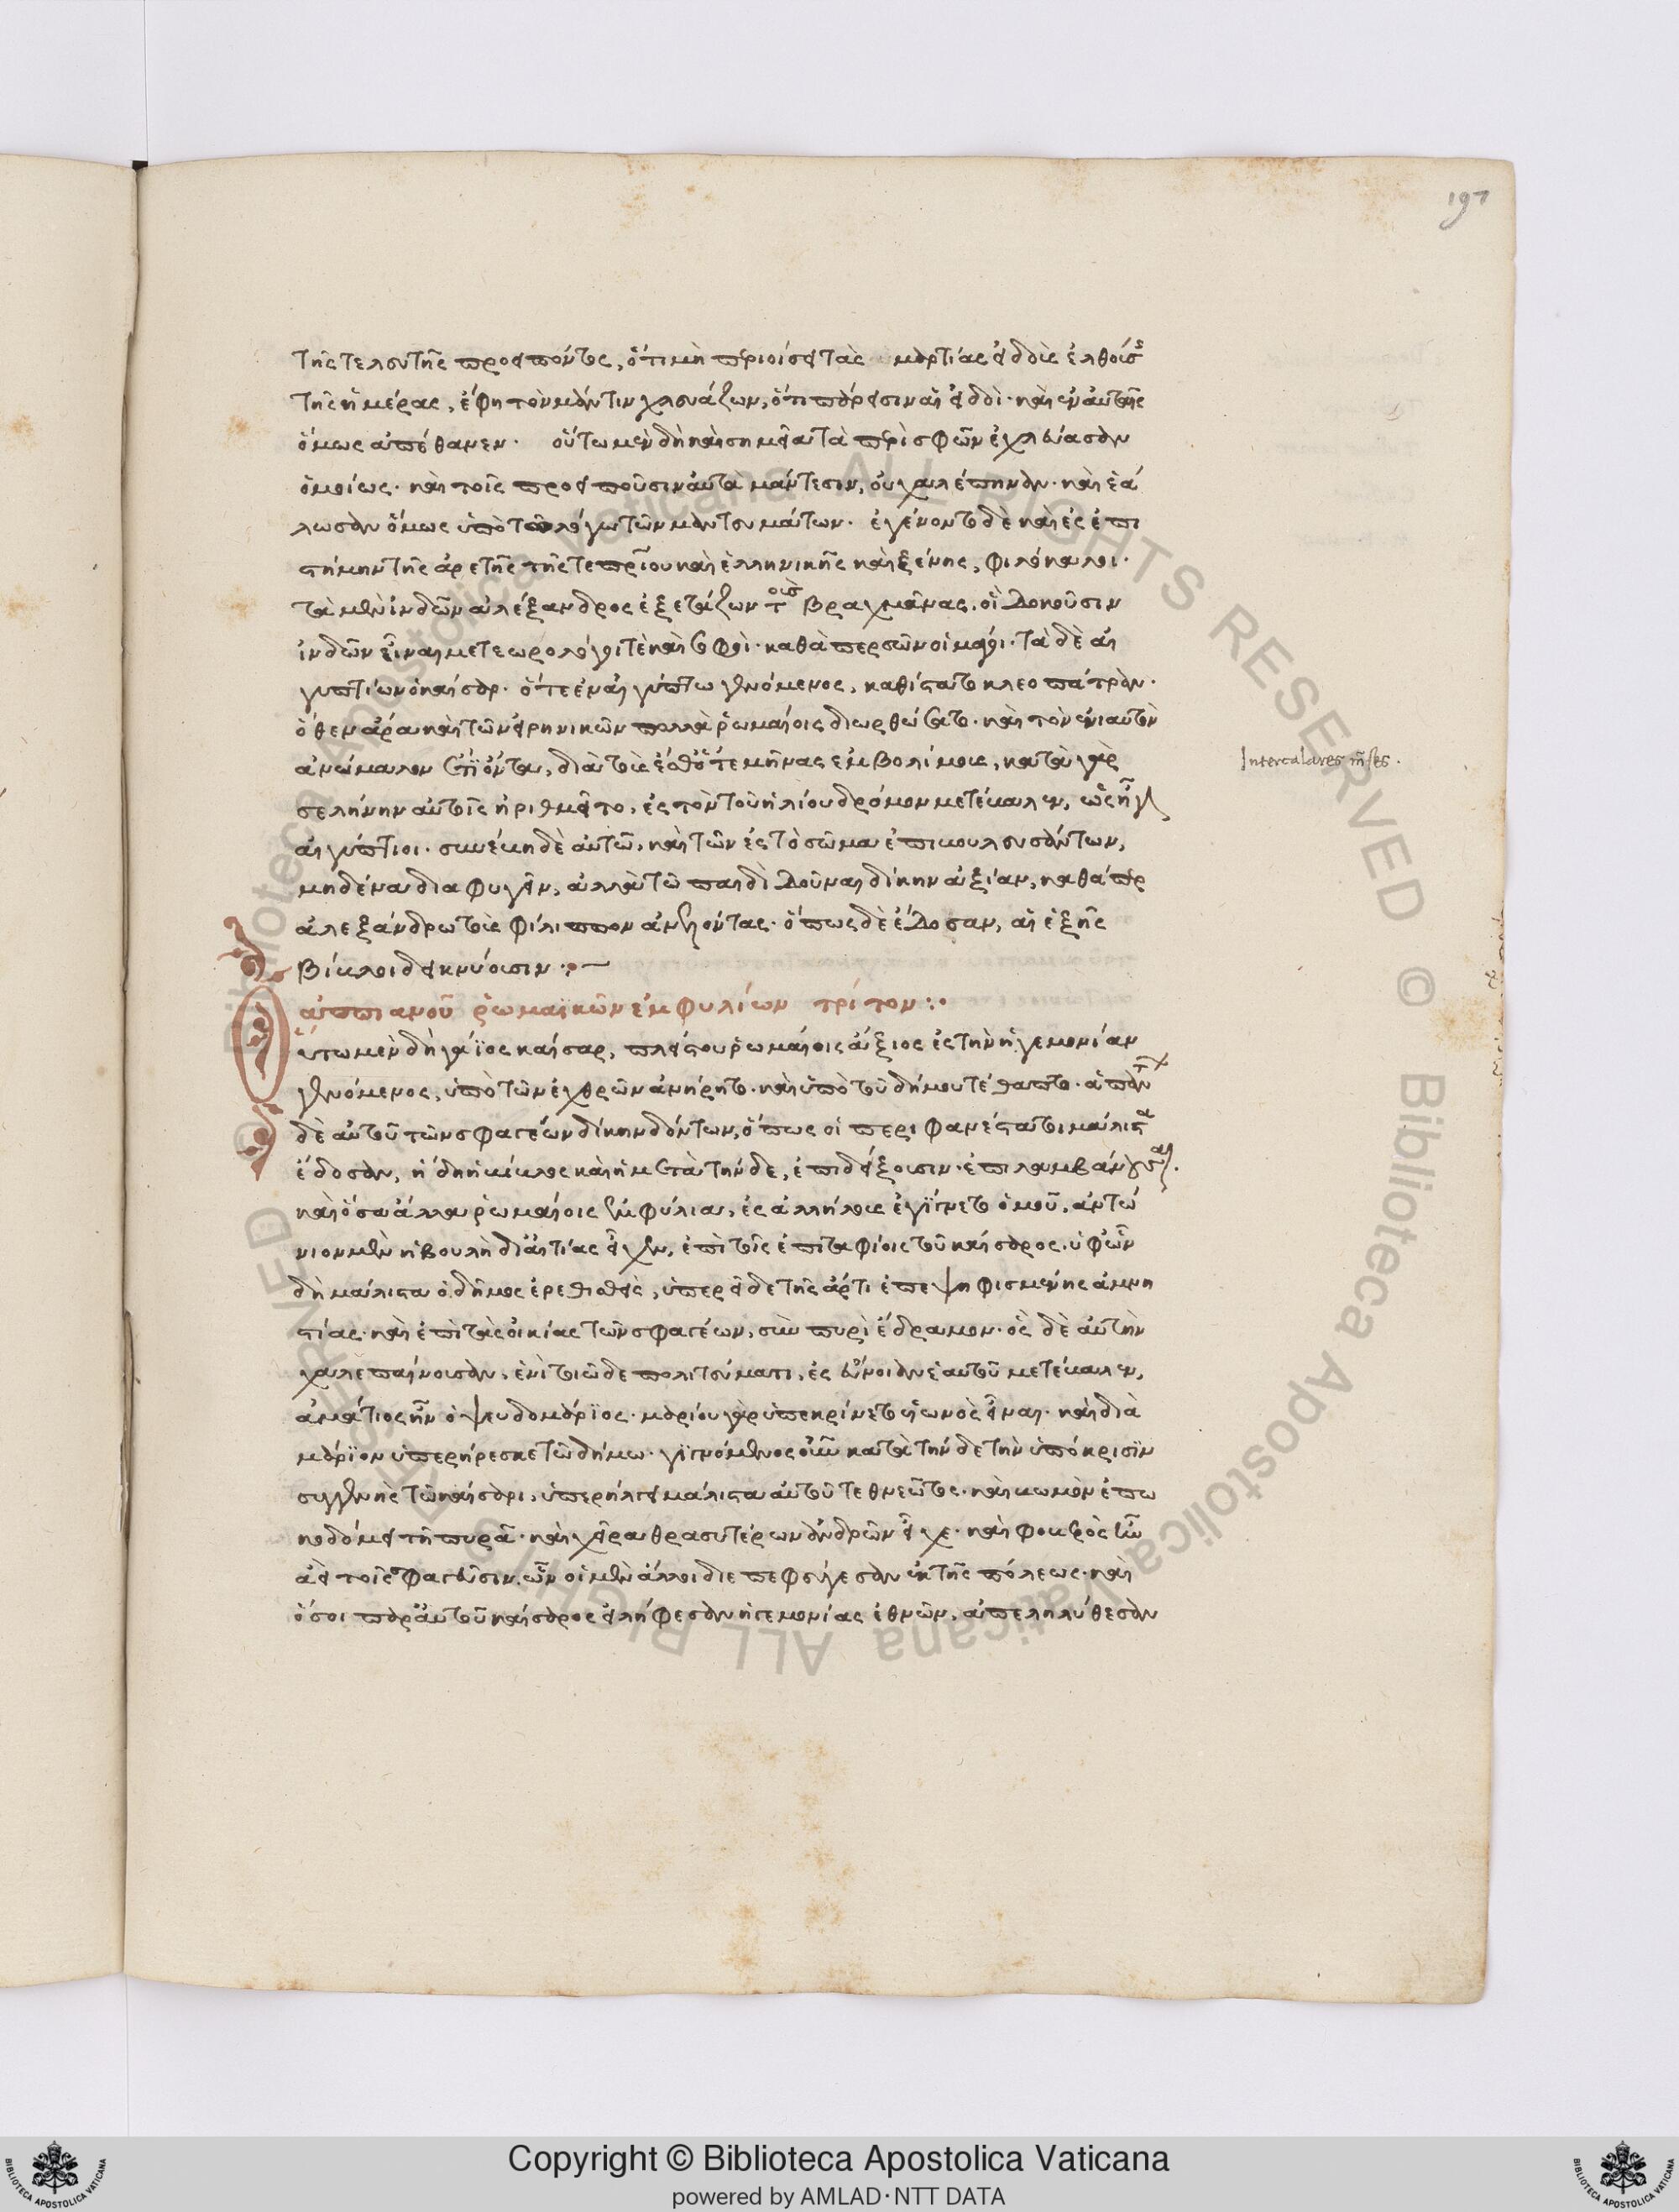 197
τῆς τελευτῆς προειπόντος, ὅτι μὴ περιοίσει τὰς μαρτίας εἰδοὺς ἐλθούσης
τῆς ἡμέρας, ἔφη τὸν μάντιν χλευάζων, ὅτι πάρεισιν αἱ εἰδοί· καὶ ἐν αὐταῖς
ὅμως ἀπέθανεν· οὕτω μὲν δὴ καὶ σημεῖα τὰ περὶ σφῶν ἐχλεύασαν
ὁμοίως· καὶ τοῖς προειποῦσιν αὐτὰ μάντεσιν, οὐ χαλέπηναν· καὶ ἑά
λωσαν ὅμως ὑπὸ τῶ λόγω τῶν μαντευμάτων· ἐγένοντο δὲ καὶ ἐς ἐπι
στήμην τῆς ἀρετῆς τῆς τε πατρίου καὶ ἑλληνικῆς καὶ ξένης, φιλόκαλοι·
τὰ μὲν ἰνδῶν ἀλέξανδρος ἐξετάζων τοὺς βραχμᾶνας, οἳ δοκοῦσιν
ἰνδῶν εἶναι μετεωρολόγοι τὲ καὶ σοφοὶ· καθὰ περσῶν οἱ μάγοι· τὰ δὲ αἰ
γυπτίων ὁ καίσαρ· ὅτε ἐν αἰγύπτω γενόμενος, καθίστατο κλεοπάτραν·
ὅθεν ἄρα καὶ τῶν εἰρηνικῶν πολλὰ ῥωμαίοις διωρθώσατο· καὶ τὸν ἐνιαυτὸν
ἀνώμαλον ἔτι ὄντα, διὰ τοὺς ἔσθ' ὅτε μῆνας ἐμβολίμους, κατὰ γὰρ
σελήνην αὐτοῖς ἠριθμεῖτο, ἐς τὸν τοῦ ἡλίου δρόμον μετέβαλεν, ὡς ἦγον
αἰγύπτιοι· συνέβη δὲ αὐτῶ, καὶ τῶν ἐς τὸ σῶμα ἐπιβουλευσάντων,
μηδένα διαφυγεῖν, ἀλλὰ τῶ παιδὶ δοῦναι δίκην ἀξίαν, καθάπερ
ἀλεξάνδρω τοὺς φίλιππον ἀνελόντας· ὅπως δὲ ἔδοσαν, αἱ ἑξῆς
βίβλοι δεικνύουσιν·:—
ἀππιανοῦ ῥωμαϊκῶν ἐμφυλίων τρίτον:·
Οὕτω μὲν δὴ γάϊος καίσαρ, πλείστου ῥωμαίοις ἄξιος ἐς τὴν ἡγεμονίαν
γενόμενος, ὑπὸ τῶν ἐχθρῶν ἀνήρητο· καὶ ὑπὸ τοῦ δήμου τέθαπτο· ἁπάντων
δὲ αὐτοῦ τῶν σφαγέων δίκην δόντων, ὅπως οἱ περιφανέστατοι μάλιστα
ἔδοσαν, ἡ δὴ ἡ βίβλος καὶ ἡ μετὰ τήνδε, ἐπιδείξουσιν· ἐπιλαμβάνουσαι
καὶ ὅσα ἄλλα ῥωμαίοις ἐμφύλια, ἐς ἀλλήλους ἐγίγνετο ὁμοῦ, ἀντώ
νιον μὲν ἡ βουλὴ δι' αἰτίας εἶχεν, ἐπὶ τοῖς ἐπιταφίοις τοῦ καίσαρος. ὑφ' ὧν
δὴ μάλιστα ὁ δῆμος ἐρεθισθεὶς, ὑπερεῖδε τῆς ἄρτι ἐπεψηφισμένης ἀμνη
στίας· καὶ ἐπὶ τὰς οἰκίας τῶν σφαγέων, σὺν πυρὶ ἔδραμον· ὃς δὲ αὐτὴν
χαλεπαίνουσαν, ἑνὶ τοιῶδε πολιτεύματι, ἐς εὔνοιαν ἑαυτοῦ μετέβαλεν,
ἀμάτιος ἦν ὁ ψευδομάριος· μαρίου γὰρ ὑπεκρίνετο υἱωνὸς εἶναι· καὶ διὰ
μάριον ὑπερήρεσκε τῶ δήμω· γιγνόμενος οὖν κατὰ τήνδε τὴν ὑπόκρισιν
συγγενὴς τῶ καίσαρι, ὑπερήλγει μάλιστα αὐτοῦ τεθνεῶτος· καὶ βωμὸν ἐπω
κοδόμει τῆ πυρᾶ· καὶ χεῖρα θρασυτέρων ἀνδρῶν εἶχε· καὶ φοβερὸς ἦν
ἀεὶ τοῖς σφαγεῦσιν, ὧν οἱ μὲν ἄλλοι διεπεφεύγεσαν ἐκ τῆς πόλεως· καὶ
ὅσοι παρ' αὐτοῦ καίσαρος εἰλήφεσαν ἡγεμονίας ἐθνῶν, ἀπεληλύθεσαν
Intercalares m̃ses.
Copyright © Biblioteca Apostolica Vaticana
powered by AMLAD·NTT DATA